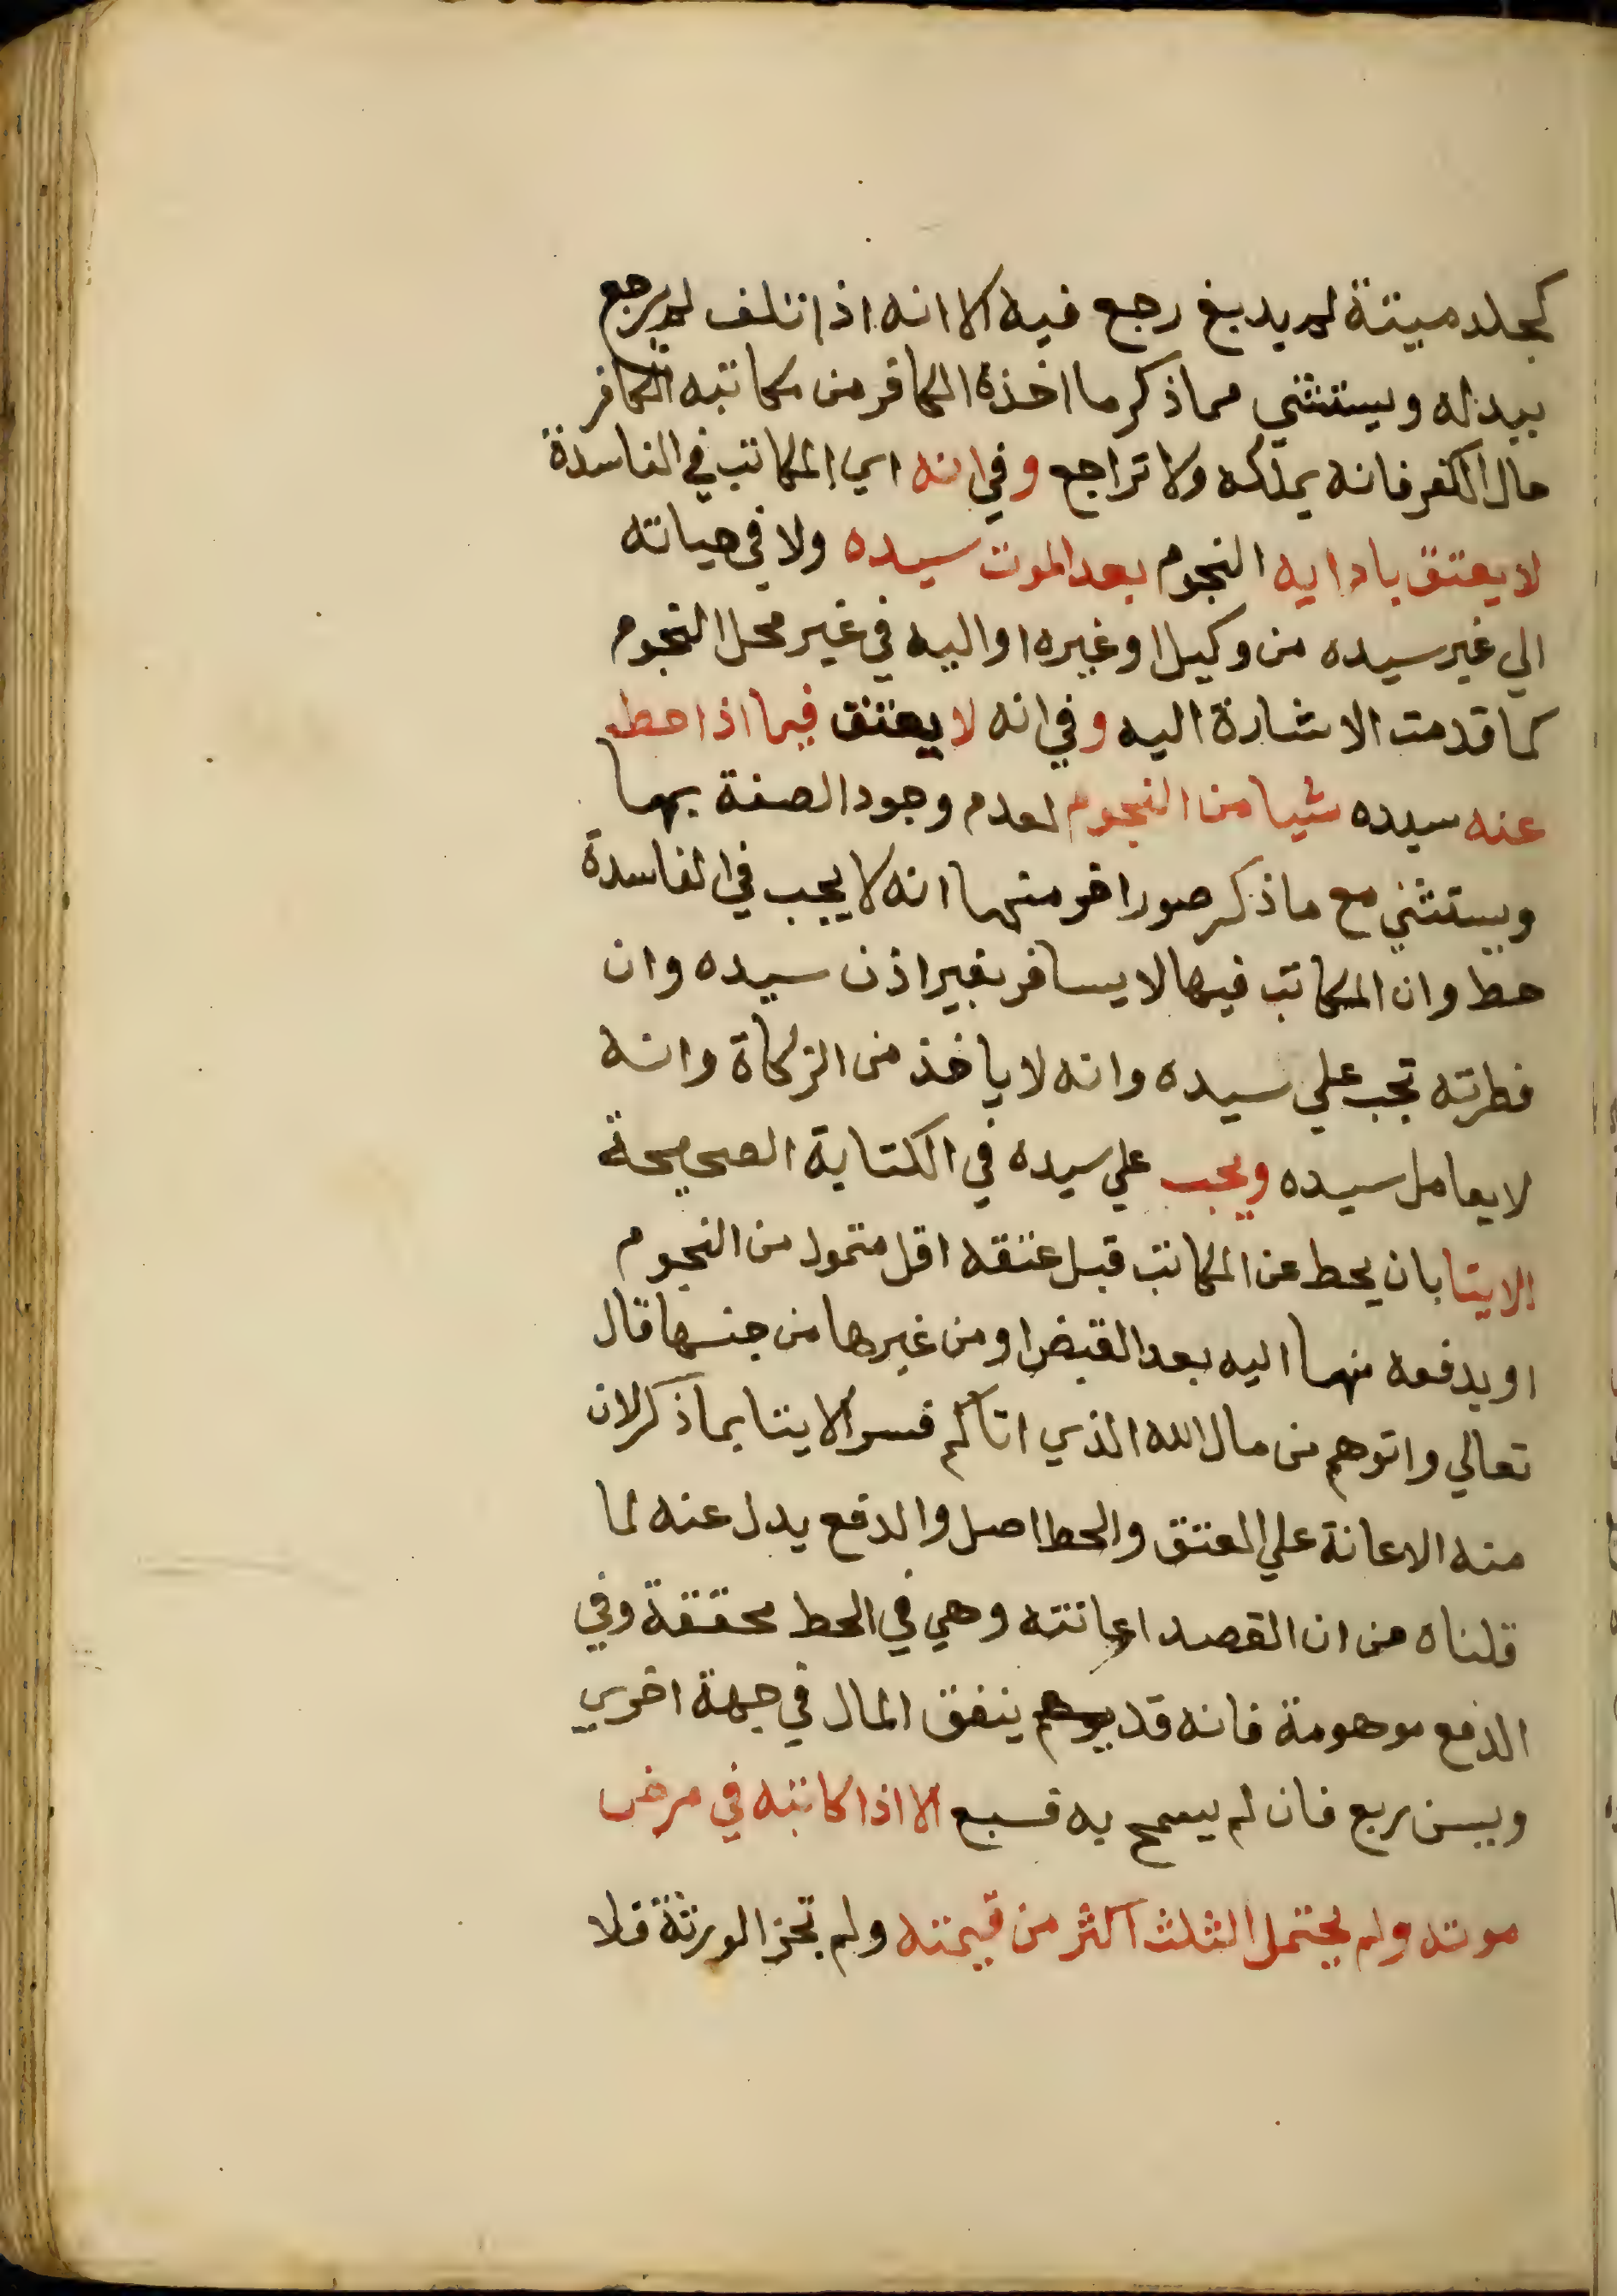 كجلد ميتة لم يدبغ رجع فيه الا انه اذا تلف لم يرجع
ببدله ويستثني مما ذكر ما اخذه الكافر من مكاتبه الكافر
حال الكفر فانه يملكه ولا تراجع وفي انه اي المكاتب في الفاسدة
لا يعتق بادايه النجوم بعد الموت سيده ولا في حياته
الي غير سيده من وكيل او غيره او اليه في غير محل النجوم
كما قدمت الاشارة اليه وفي انه لا يعتق فيما اذا حط
عنه سيده شيا من النجوم لعدم وجود الصفة بهما
ويستثني مع ما ذكر صور اخر منها انه لا يجب في الفاسدة
حط وان المكاتب فيها لا يسافر بغير اذن سيده وان
فطرته تجب علي سيده وانه لا ياخذ من الزكاة وانه
لا يعامل سيده ويجب علي سيده في الكتابة الصحيحة
الايتا بان يحط عن المكاتب قبل عتقه اقل متمول من النجوم
او يدفعه منها اليه بعد القبض او من غيرها من جنسها قال
تعالي واتوهم من مال الله الذي اتاكم فسر الايتا بما ذكر لان
منه الاعانة علي العتق والحط اصل والدفع بدل عنه لما
قلناه من ان القصد اعانته وهي في الحط محققة وفي
الدفع موهومة فانه قد ينفق المال في جهة اخري
ويسن ربع فان لم يسمح به فسبع الا اذا كاتبه في مرض
موته ولم يحتمل الثلث اكثر من قيمته ولم تجز الورثة فلا